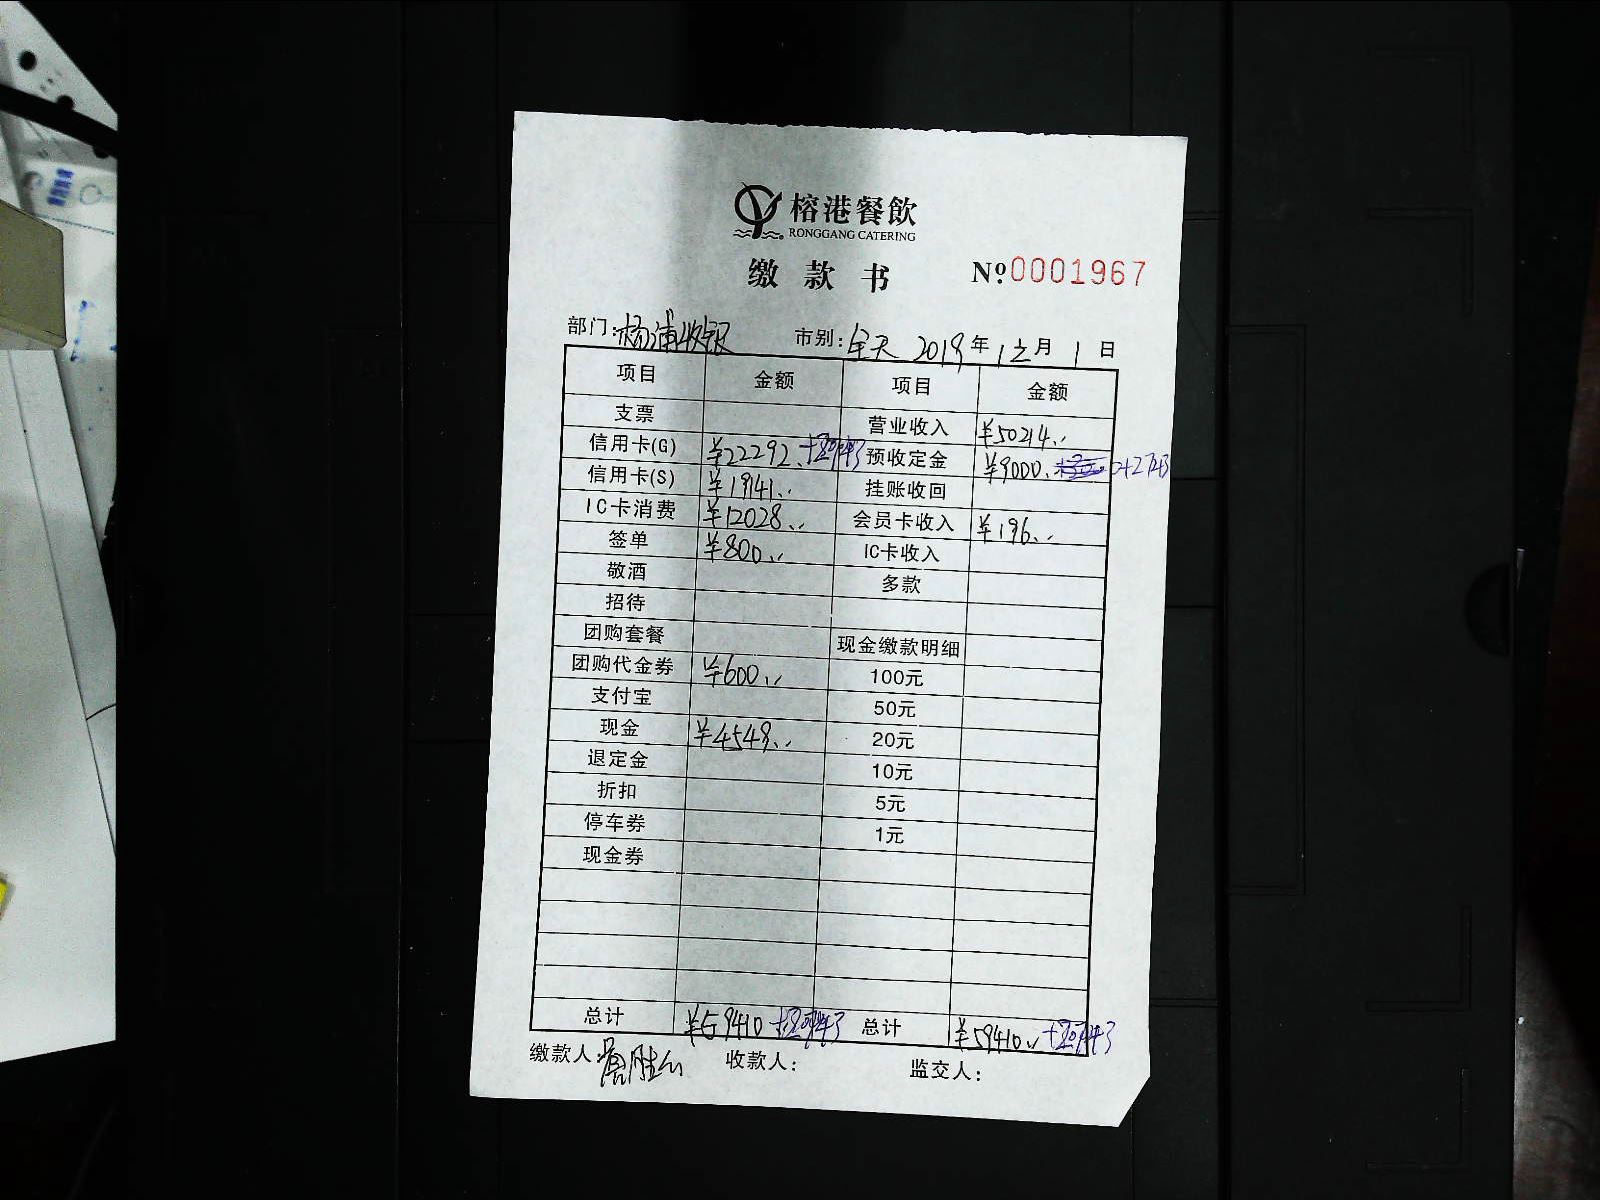 榕港餐飲
RONGGANG CATERING
缴款书 Nº.0001967
部门:杨浦收银 市别:全天 2019年12月1日
项目 金额 项目 金额
支票 营业收入 ¥50214
信用卡(G) ¥22292 预收定金 ¥9000
信用卡(S) ¥19141 挂账收回
IC卡消费 ¥12028 会员卡收入 ¥196
签单 ¥800 IC卡收入
敬酒 多款
招待
团购套餐 现金缴款明细
团购代金券 ¥600 100元
支付宝 50元
现金 ¥4549 20元
退定金 10元
折扣 5元
停车券 1元
现金券
总计 ¥59410 总计 ¥59410
缴款人: 收款人: 监交人: